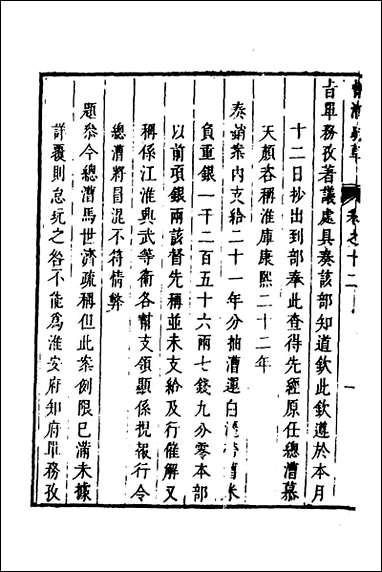 旨單務孜著議處具奏該部知道欽此欽遵於本月
十二日抄出到部奉此查得先經原任總漕慕
天顏咨稱淮庫康熙二十二年
奏銷案內支給二十一年分抽漕運白
負重銀一千二百五十六兩七錢九分零本部
以前項銀兩該督先稱並未支給及行催解又
稱係江淮興武等衛各幫支領顯係捏報行令
總漕將冒混不符情弊
題參今總漕馬世濟疏稱但此案例限已滿未據
詳覆則怠玩之咎不能為淮安府知府單務孜
卷之十二
一